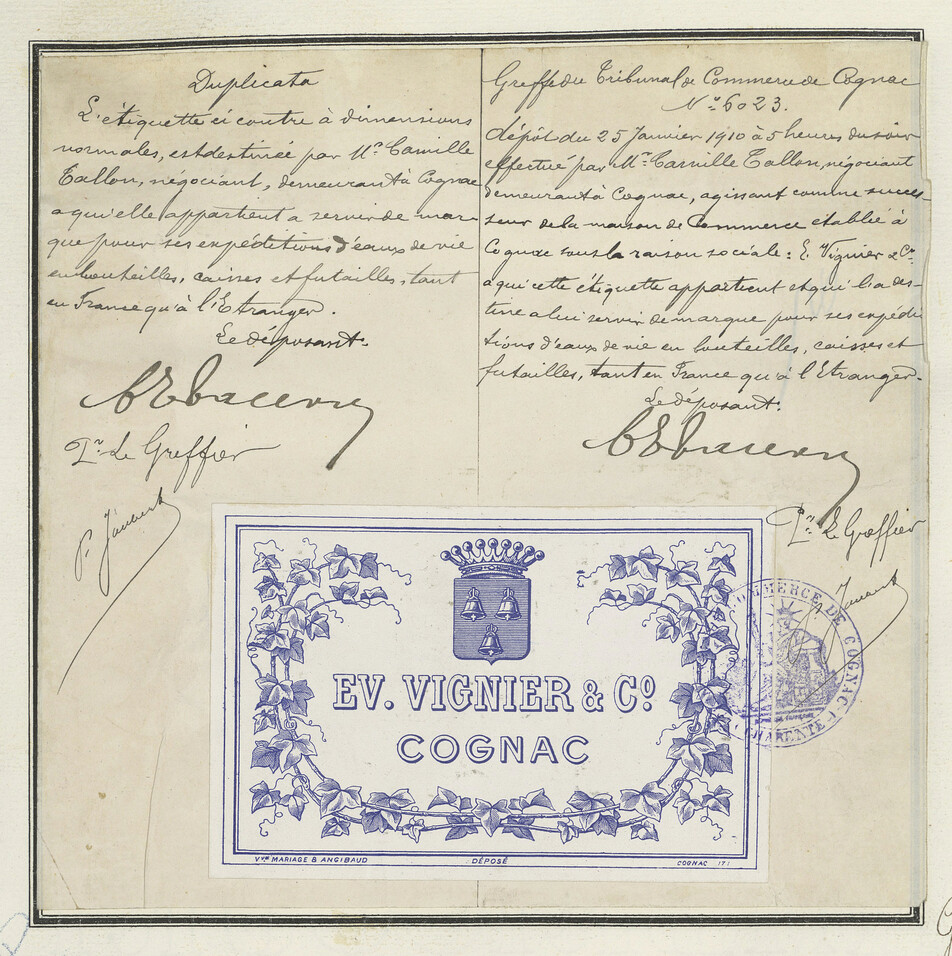 Duplicata
L'étiquette ci contre à dimensions
normales, est destinée par Mr. Camille
Tallon, négociant, demeurant à Cognac
a qui elle appartient a servir de mar-
que pour ses expéditions d'eaux de vie
en bouteilles, caisses et futailles, tant
en France qu'à l'Etranger.
Le déposant.
Pr. Le Greffier
Greffe du Tribunal de Commerce de Cognac
No. 6023.
dépôt du 25 Janvier 1910 à 5 heures du soir
effectué par Mr. Camille Tallon, négociant
demeurant à Cognac, agissant comme succes-
seur de la maison de Commerce établie à
Cognac sous la raison sociale: E. Vignier & Co.
a qui cette étiquette appartient et qu'il a des-
tine a lui servir de marque pour ses expédi
tions d'eaux de vie en bouteilles, caisses et
futailles, tant en France qu'à l'Etranger.
Le déposant.
Pr. Le Greffier
EV. VIGNIER & Co.
COGNAC
Vve MARIAGE & ANGIBAUD
DÉPOSÉ
COGNAC 171
COMMERCE DE COGNAC
CHARENTE